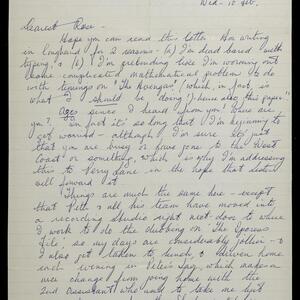 Wed - 10 Feb.
Dearest Rose -
Hope you can read this letter. Am writing
in longhand for 2 reasons - (a) I'm dead bored with
typing, & (b) I'm pretending like I'm working out
some complicated mathematical problems to do
with timings on "The Avengers", which, in fact, is
what I should be doing (hence also this paper).
Ages since I heard from you! How are
you? In fact it's so long that I'm beginning to
get worried - although I'm sure it's just
that you are busy or have gone to the West
Coast or something, which is why I'm addressing
this to Perry Lane in the hope that
will forward it.
Things are much the same here - except
that & all his team have moved into
a recording studio right next-door to where
I work to do the dubbing on "The Ipcress
File", so my days are considerably jollier - &
I also get taken to lunch, & driven home
each evening in which makes a
nice change from going home with the
2nd assistant who used to take me but